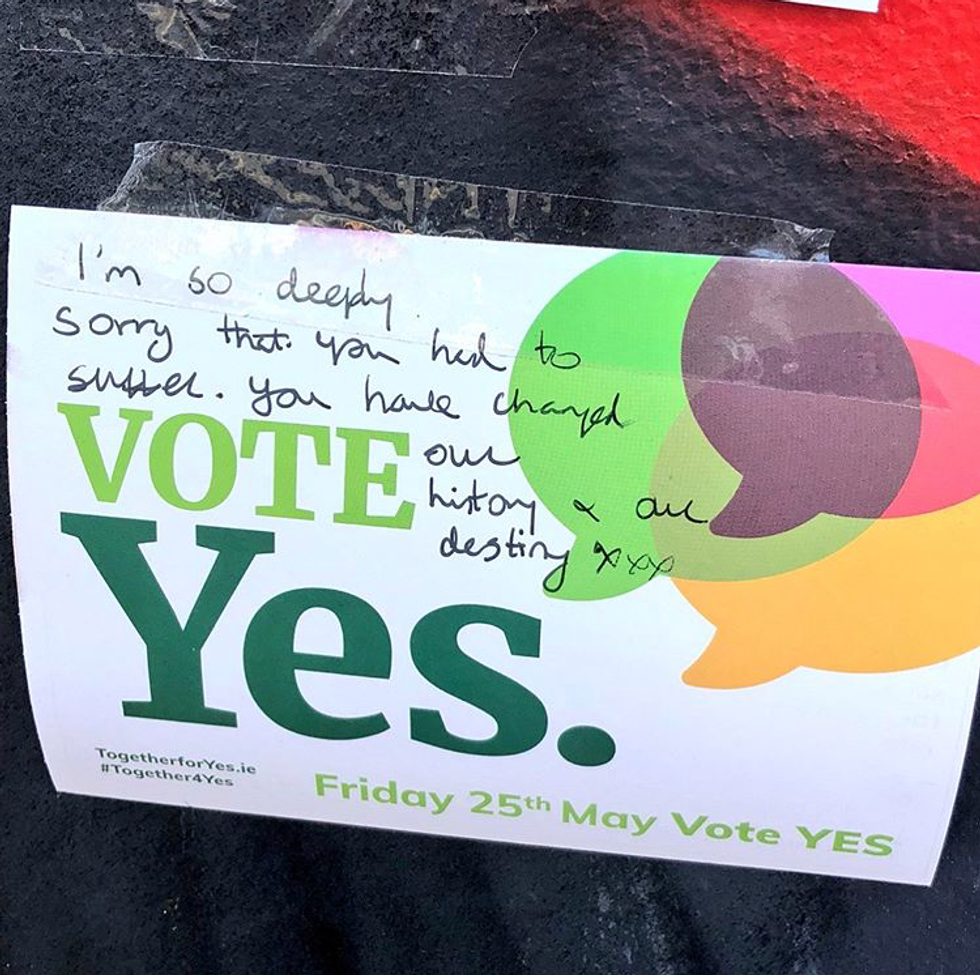 I'm so deeply
sorry that you had to
suffer. You have changed
our
history & our
destiny xxx
VOTE
Yes.
TogetherforYes.ie
#Together4Yes
Friday 25th May Vote YES